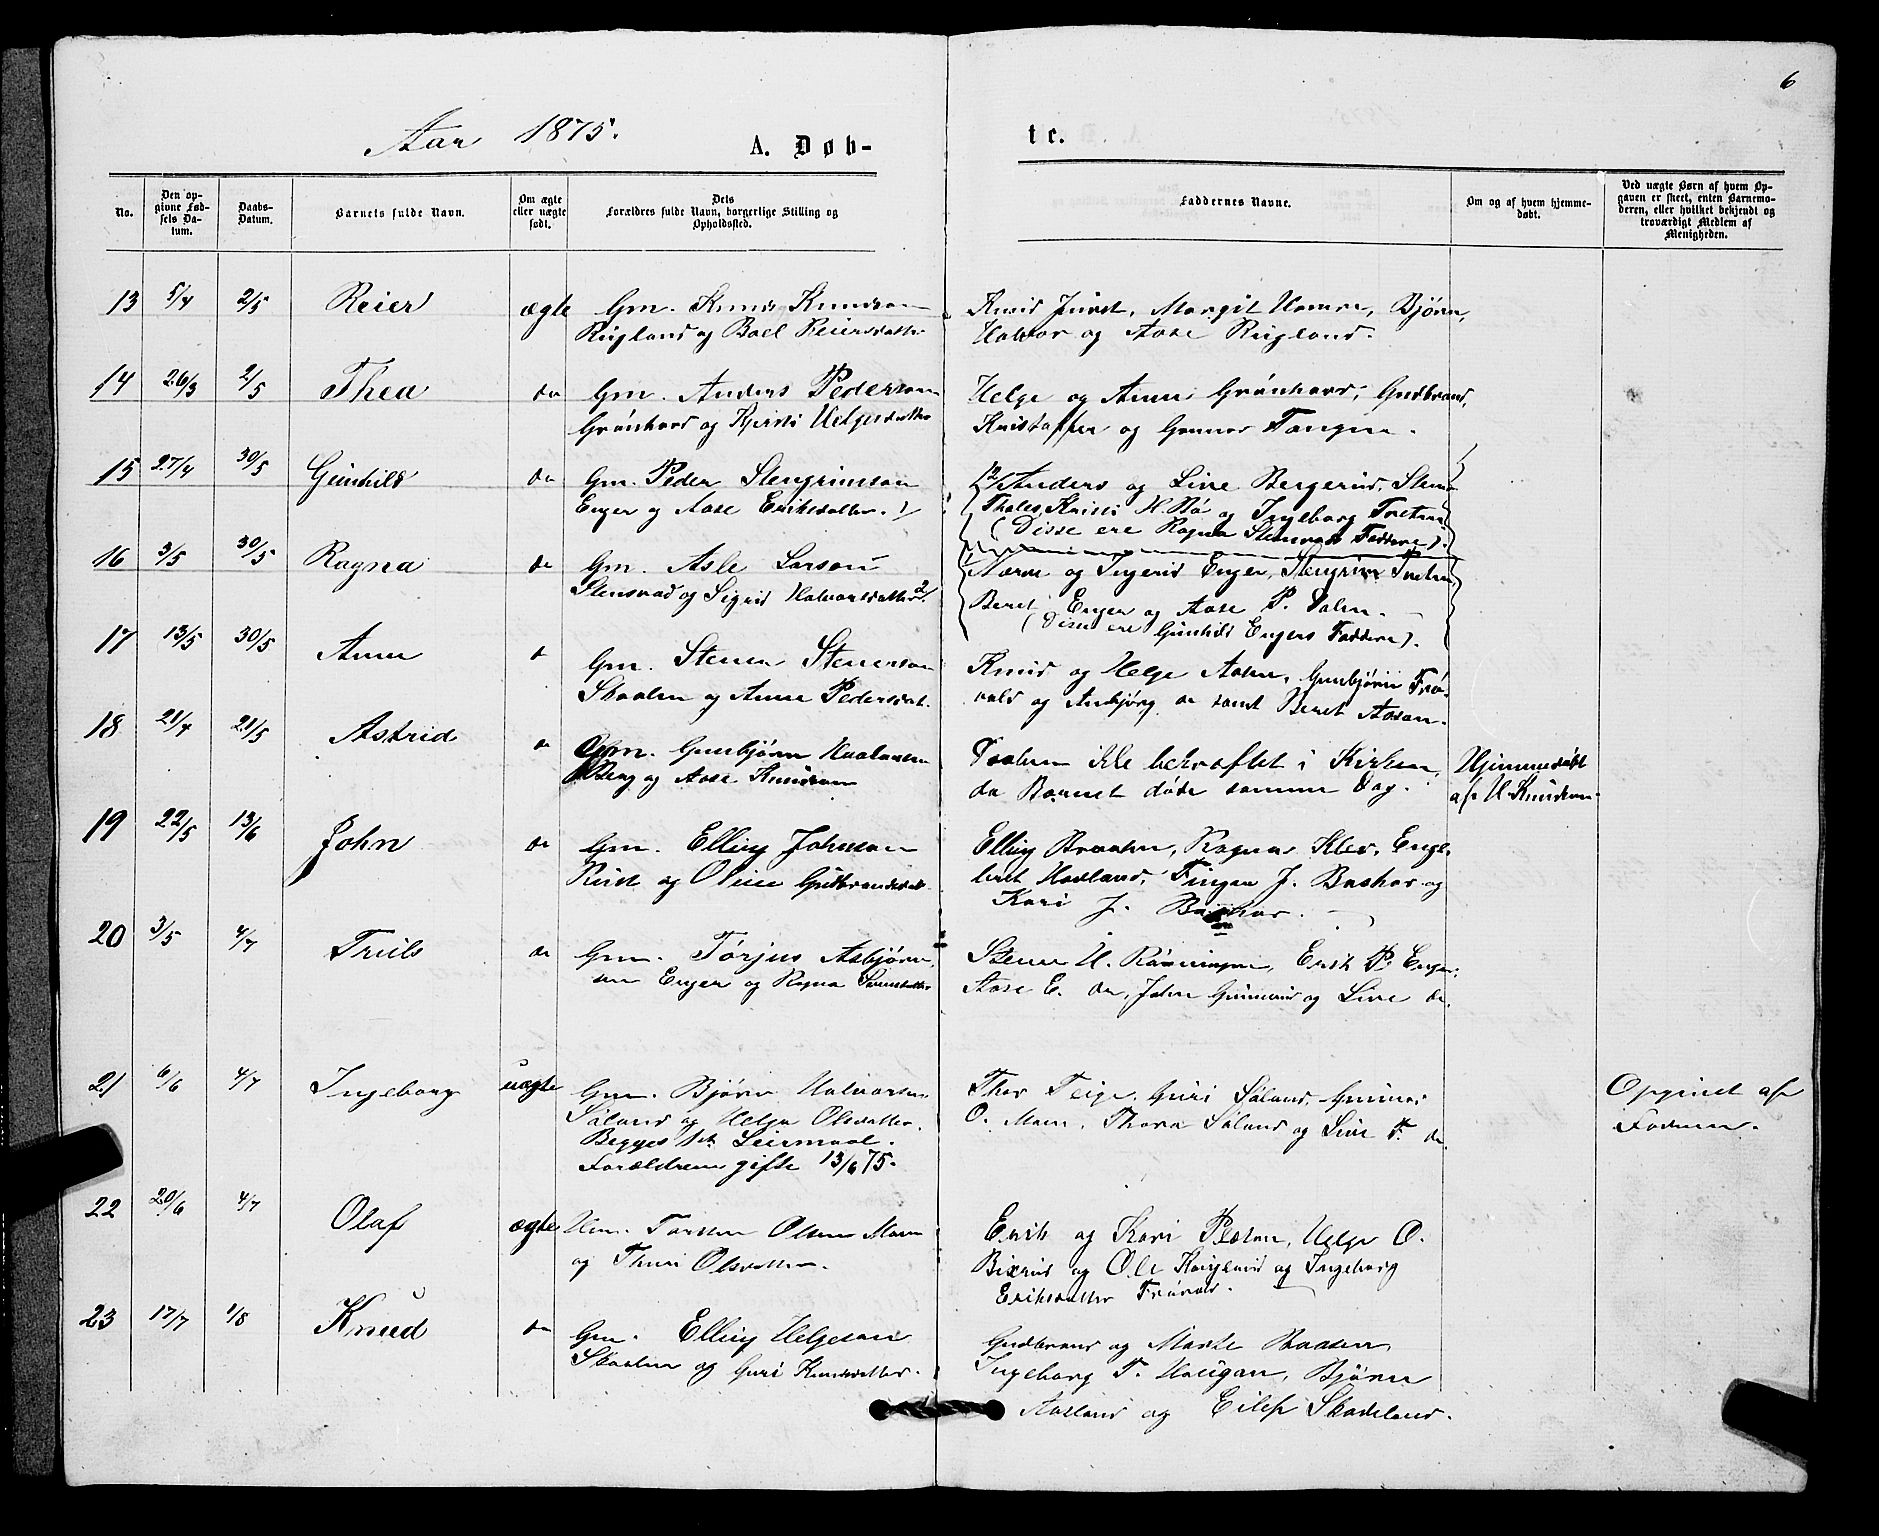 6
Aar 1875.
A. Døb-
te.
No.
Den op-
givne Fød-
sels Da-
tum.
Daabs-
Datum.
Barnets fulde Navn.
Om ægte
eller uægte
født.
Dets
Forældres fulde Navn, borgerlige Stilling og
Opholdssted.
Faddernes Navne.
Om og af hvem hjemme-
døbt.
Ved uægte Børn af hvem Op-
gaven er skeet, enten Barnemo-
deren, eller hvilket bekjendt og
troværdigt Medlem af
Menigheden.
13 5/4 2/5 Reier ægte Gm. Knud Knudsen
Rugland og Boel Reiersdatter
Knud Juvet, Margit Hamre, Bjørn,
Halvor og Aase Rugland.
14 26/3 2/5 Thea do Gm. Anders Pedersen
Grønhovd og Kjersti Helgesdatter
Helge og Anne Grønhovd, Gudbrand,
Kristoffer og Gunnar Tangen.
15 27/4 30/5 Gunhild do Gm. Peder Stengrimsen
Enger og Aase Eriksdatter. 1/
Anders og Live Bergerud,
Thales, Kristi H. Rø og Ingeborg Tretun
(Disse ere Ragna Stensrud Faddere).
16 3/5 30/5 Ragna do Gm. Asle Larson
Stensrud og Sigrid Halvorsdatter 2/.
og Ingerid Enger, Stengrim Tretun,
Beret Enger og Aase P. Dalen.
(Disse ere Gunhild Engers Faddere).
17 13/5 30/5 Anne do Gm. Stener Stenersen
Skaalen og Anne Pedersdat.
Knud og Helge Aasen, Gunbjørn Frø-
vold og Anbjørg do samt Beret Aasen.
18 21/4 21/5 Astrid do Gm. Gunbjørn
Berg og Aase Knudsen
Daaben ikke bekræftet i Kirken,
da Barnet døde samme Dag.
Hjemmedøbt
af H. Knudsen.
19 22/5 13/6 John do Gm. Elling Johnsen
Rust og Oline Gudbrandsdat.
Elling Braaten, Ragna Klev, Enge-
bret Havland, J. Bakhus og
Kari J. Bakhus.
20 3/5 4/7 Truls do Gm. Torjus Asbjørn-
sen Enger og Ragna
Stener H. Rønningen, Erik P. Enger,
Aase E. do, John Gunnerud og Live do.
21 6/6 4/7 Ingeborg uægte Gm. Bjørn Halvorsen
Søland og Helga Olsdatter.
Begges 1ste Leiermaal.
Forældrene gifte 13/6 75.
Thor Teige, Guri Søland, Gunnar
O. Moen, Thora Søland og Live T. do
Opgivet af
Faderen.
22 20/6 4/7 Olaf ægte Hm. Torsten Olsen Moen
og Thuri Olsdatter.
Erik og Kari Pladsen, Helge O.
Bixrud og Ole Haugland og Ingeborg
Eriksdatter Frøvold.
23 17/7 1/8 Knud do Gm. Elling Helgesen
Skaalen og Guri Knudsdatter.
Gudbrand og Marte Braaten,
Ingeborg T. Haugan, Bjørn
Aasland og Eilef Skadeland.